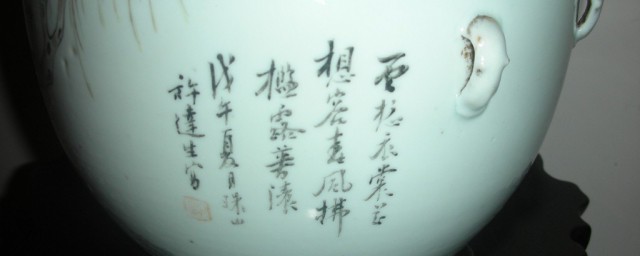 雲想衣裳花
想容春風拂
檻露華濃
戊午夏月珠山
許達生寫